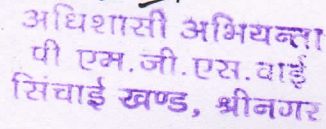 अधिशासी अभियन्ता
पी एम.जी.एस.वाई
सिंचाई खण्ड, श्रीनगर